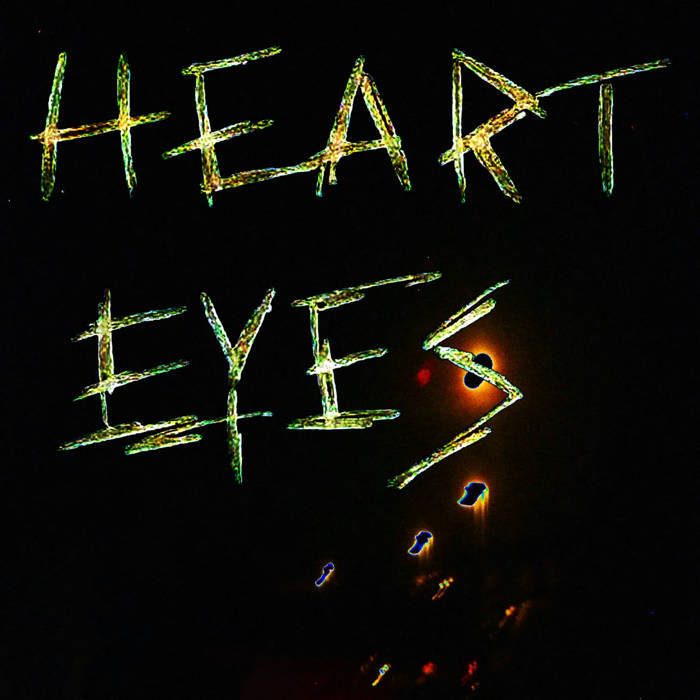 HEART
EYES